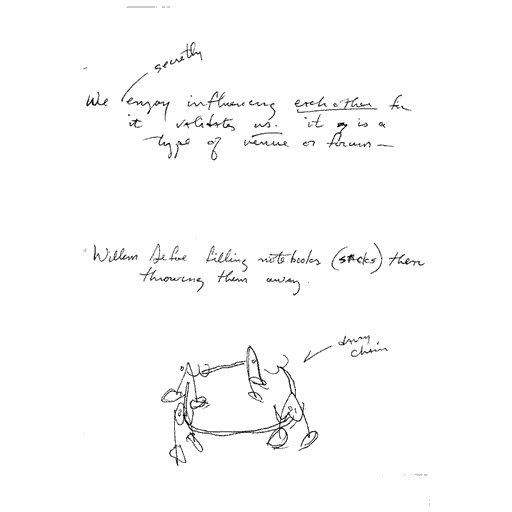 secretly
We enjoy influencing each other for
it validates us. it is a
type of venue or forum —
Willem Dafoe filling notebooks (stacks) then
throwing them away.
chain